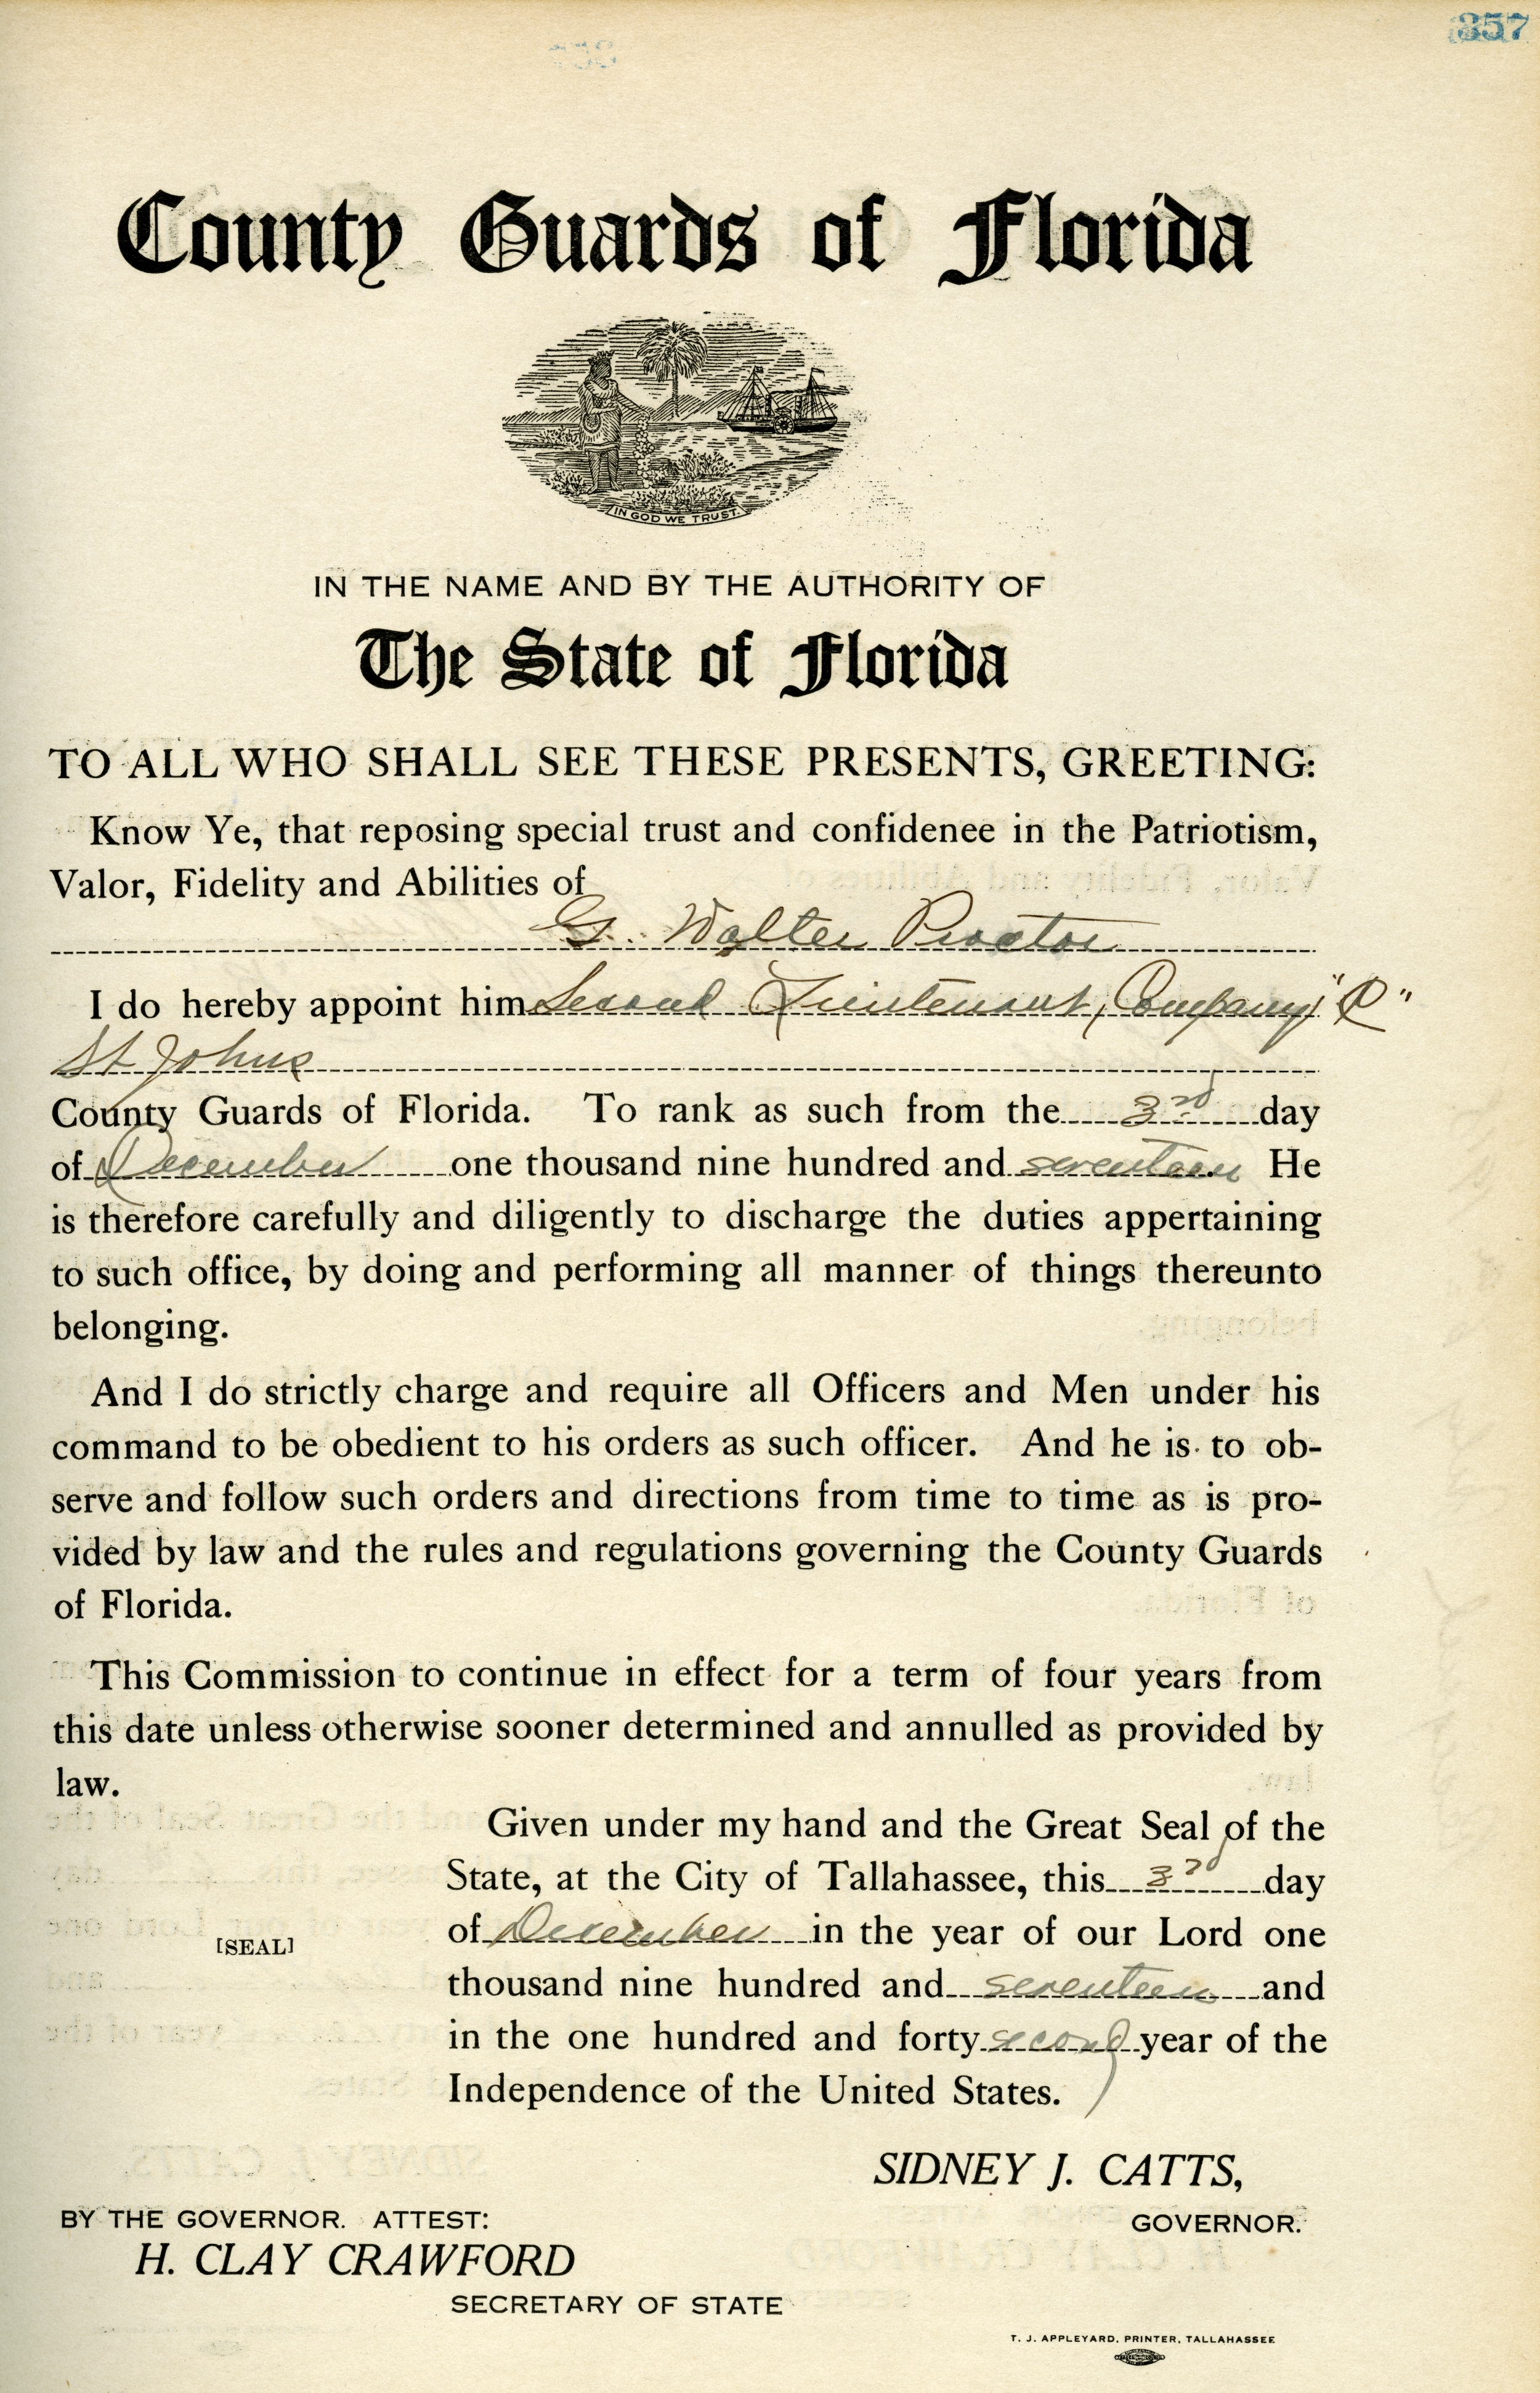 357
County Guards of Florida
IN GOD WE TRUST.
IN THE NAME AND BY THE AUTHORITY OF
The State of Florida
TO ALL WHO SHALL SEE THESE PRESENTS, GREETING:
Know Ye, that reposing special trust and confidenee in the Patriotism,
Valor, Fidelity and Abilities of
G. Walter Proctor
I do hereby appoint him Second Lieutenant, Company
St Johns
County Guards of Florida. To rank as such from the 3rd day
of December one thousand nine hundred and seventeen He
is therefore carefully and diligently to discharge the duties appertaining
to such office, by doing and performing all manner of things thereunto
belonging.
And I do strictly charge and require all Officers and Men under his
command to be obedient to his orders as such officer. And he is to ob-
serve and follow such orders and directions from time to time as is pro-
vided by law and the rules and regulations governing the County Guards
of Florida.
This Commission to continue in effect for a term of four years from
this date unless otherwise sooner determined and annulled as provided by
law.
Given under my hand and the Great Seal of the
State, at the City of Tallahassee, this 3rd day
of December in the year of our Lord one
[SEAL]
thousand nine hundred and seventeen and
in the one hundred and forty second year of the
Independence of the United States.
SIDNEY J. CATTS,
GOVERNOR.
BY THE GOVERNOR. ATTEST:
H. CLAY CRAWFORD
SECRETARY OF STATE
T. J. APPLEYARD, PRINTER, TALLAHASSEE